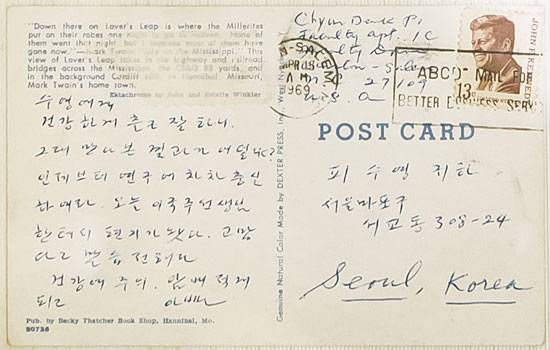 "Down there on Lover's Leap is where the Millerites
put on their robes one night to go to heaven. None of
them went that night, but I suppose most of them have
gone now."—Mark Twain, "Life on the Mississippi." This
view of Lover's Leap takes in the highway and railroad
bridges across the Mississippi, the yards, and
in the background Cardiff Hill, in Hannibal, Missouri,
Mark Twain's home town.
Ektachrome by John and Estelle Winkler
수영에게
건강하게 출근 잘 하니.
그대 만나본 결과가 어떨니?
인제부터 연구에 차차 충실
하여라. 오늘 이국주 선생님
한테서 편지가 왔다. 고맙
다고 말씀 전해라
건강에 주의. 담배 적게
피고 아빠
Pub. by Becky Thatcher Book Shop, Hannibal, Mo.
80736
Genuine Natural Color Made by DEXTER PRESS, Inc., West Nyack,
Faculty apt. 1C
Faculty Drive
27109
U.S.A
SALEM,
APR
AM
1969
JOHN F. KENNEDY
13c
ABCD MAIL FOR
BETTER BUSINESS SERV
POST CARD
피 수영 귀하
서울 마포구
서교동 308-24
Seoul, Korea